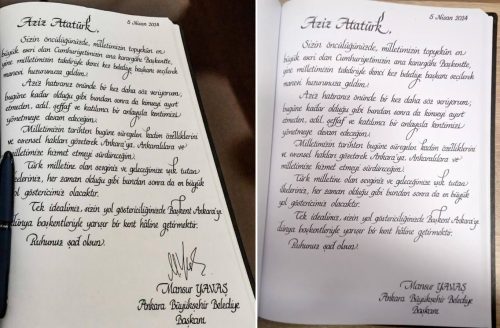 Aziz Atatürk, 5 Nisan 2024
Sizin öncülüğünüzde, milletimizin topyekûn en
büyük eseri olan Cumhuriyetimizin ana karargâhı Başkentte,
yine milletimizin takdiriyle ikinci kez belediye başkanı seçilerek
manevi huzurunuza geldim.
Aziz hatıranız önünde bir kez daha söz veriyorum;
bugüne kadar olduğu gibi bundan sonra da kimseyi ayırt
etmeden, adil, şeffaf ve katılımcı bir anlayışla kentimizi
yönetmeye devam edeceğim.
Milletimizin tarihten bugüne süregelen kadim özelliklerini
ve evrensel hakları gözeterek Ankara'ya, Ankaralılara ve
milletimize hizmet etmeyi sürdüreceğim.
Türk milletine olan sevginiz ve geleceğimize ışık tutan
her zaman olduğu gibi bundan sonra da en büyük
yol göstericimiz olacaktır.
Tek idealimiz, sizin yol göstericiliğinizde Başkent Ankara'yı
dünya başkentleriyle yarışır bir kent hâline getirmektir.
Ruhunuz şad olsun.
Mansur YAVAŞ
Ankara Büyükşehir Belediye
Başkanı
Aziz Atatürk, 5 Nisan 2024
Sizin öncülüğünüzde, milletimizin topyekûn en
büyük eseri olan Cumhuriyetimizin ana karargâhı Başkentte,
yine milletimizin takdiriyle ikinci kez belediye başkanı seçilerek
manevi huzurunuza geldim.
Aziz hatıranız önünde bir kez daha söz veriyorum;
bugüne kadar olduğu gibi bundan sonra da kimseyi ayırt
etmeden, adil, şeffaf ve katılımcı bir anlayışla kentimizi
yönetmeye devam edeceğim.
Milletimizin tarihten bugüne süregelen kadim özelliklerini
ve evrensel hakları gözeterek Ankara'ya, Ankaralılara ve
milletimize hizmet etmeyi sürdüreceğim.
Türk milletine olan sevginiz ve geleceğimize ışık tutan
her zaman olduğu gibi bundan sonra da en büyük
yol göstericimiz olacaktır.
Tek idealimiz, sizin yol göstericiliğinizde Başkent Ankara'yı
dünya başkentleriyle yarışır bir kent hâline getirmektir.
Ruhunuz şad olsun.
Mansur YAVAŞ
Ankara Büyükşehir Belediye
Başkanı